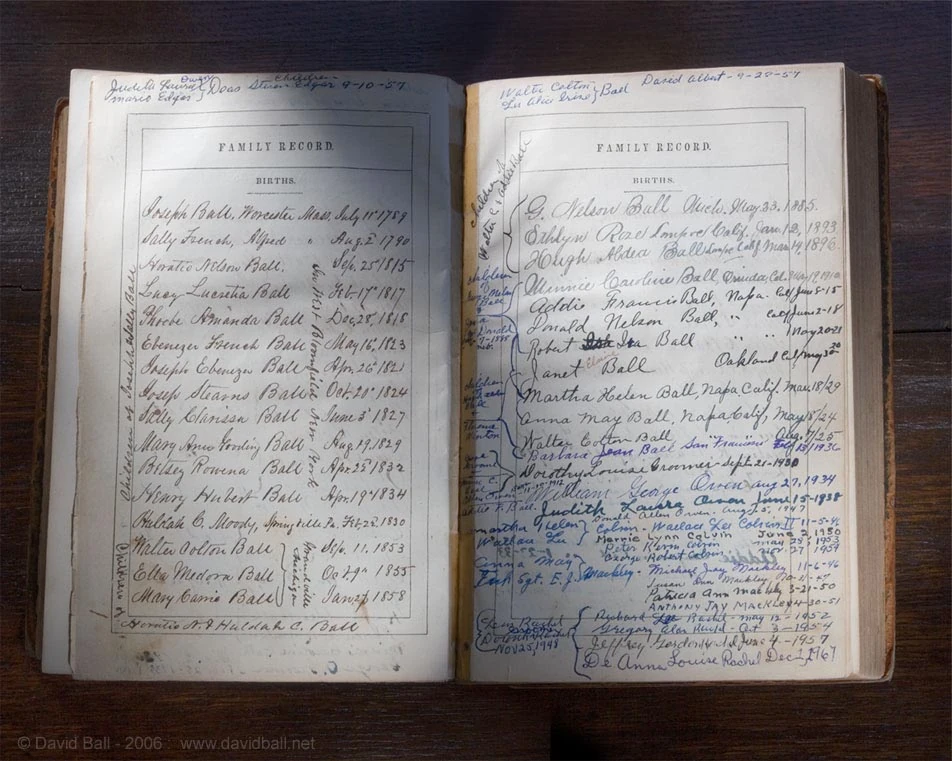 Children
Judith Laura Owen } Doas Steven Edgar 9-10-57
Mario Edgar
FAMILY RECORD.
BIRTHS.
Joseph Ball, Worcester Mass, July 11th 1789
Sally French, Alfred " Aug. 2d 1790
Horatio Nelson Ball. Sep. 25th 1815
Lucy Lucretia Ball Feb. 17th 1817
Phoebe Amanda Ball Dec. 28, 1818
Ebenezer French Ball May 16, 1823
Joseph Ebenezer Ball Apr. 26th 1821
Joseph Stearns Ball Oct. 20th 1824
Sally Clarissa Ball June 3d 1827
Mary Ann Ball Aug. 19, 1829
Betsey Rovena Ball Apr. 25th 1832
Henry Hubert Ball Apr. 19th 1834
Huldah C. Moody, Springville Pa. Feb. 22d 1830
Walter Colton Ball Sep. 11, 1853
Ella Medora Ball Oct. 9th 1855
Mary Carrie Ball Jan. 27th 1858
Horatio N. & Huldah C. Ball
Children of Joseph & Sally Ball
In West Bloomfield New York
Children of
Grandville Michigan
Walter Colton } Ball David Albert - 9-29-57
Alice Irene
FAMILY RECORD.
BIRTHS.
Children of Walter C. & Addie Ball
G. Nelson Ball Mich. May 23. 1885.
Ethlyn Rae Lompoc Calif. Jan. 12, 1893
Hugh Aldea Ball Lompoc Calif. Mar. 14, 1896.
Minnie Caroline Ball, 
Addie Francis Ball, Napa. Calif June 8-15
Donald Nelson Ball, " Calif June 2-18
Robert Ira Ball " " May 20-21
Janet Ball Oakland Cal May 30
Martha Helen Ball, Napa, Calif. Mar. 18/29
Anna May Ball, Napa Calif, May 8/24
Walter Colton Ball Aug. 7/25
Barbara Jean Ball San Francisco Feb 13/1936
Dorothy Louise Croomer - Sept. 21-1930
William George Owen Aug 27, 1934
Judith Laura Owen June 15-1938
Donald Allen Owen - Aug. 5, 1947
Martha Helen } Colvin - Wallace Lee Colvin II 11-5-46
Wallace Lee Merrie Lynn Colvin June 2, 1950
Peter Kerry Colvin May 25, 1953
George Robert Colvin Nov. 27, 1954
Anna May } Mackley - Michael Jay Mackley 11-6-46
Sgt. E. J. Susan Ann Mackley
Patricia Ann Mackley 3-21-50
ANTHONY JAY MACKLEY 4-30-51
Richard Lee Rachel - May 12 - 1952
Gregory Alan Rachel - Oct 3 - 1954
Jeffrey Gordon June 4 - 1957
De Anna Louise Rachel Dec
Nov 25, 1948
© David Ball - 2006 www.davidball.net